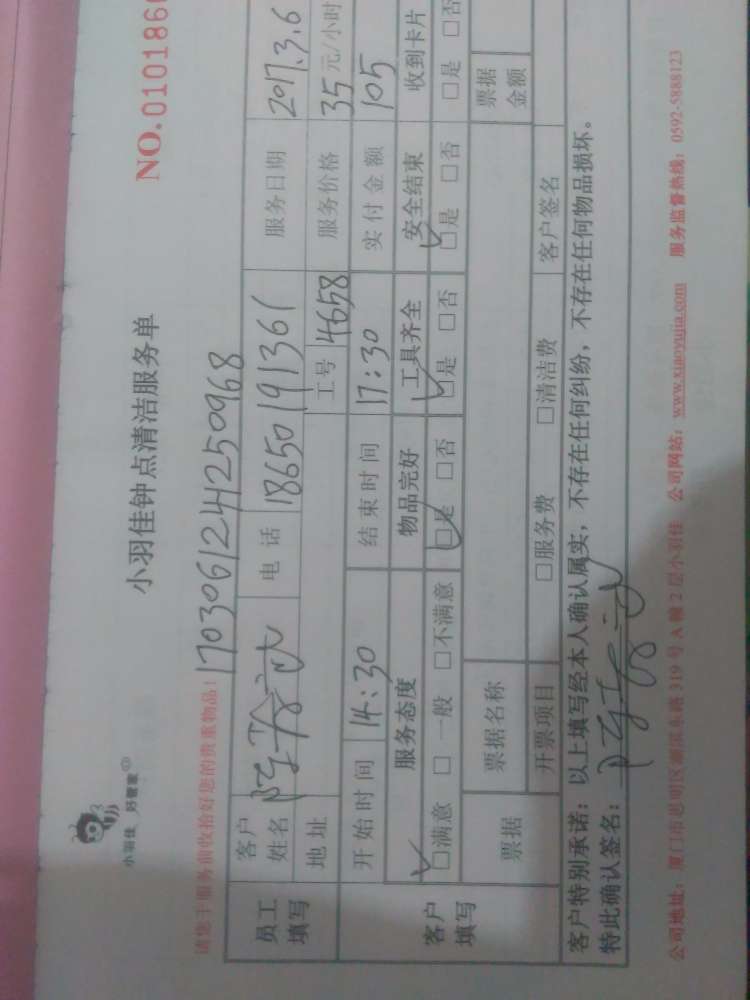 小羽佳 好管家
小羽佳钟点清洁服务单
NO.0101860
请您于服务前收拾好您的贵重物品!
170306124250968
员工填写
客户姓名
电话 18650191361 服务日期 2017.3.6
地址 工号 4658 服务价格 35元/小时
客户填写
开始时间 14:30 结束时间 17:30 实付金额 105
服务态度 物品完好 工具齐全 安全结束 收到卡片
☑满意 □一般 □不满意 ☑是 □否 ☑是 □否 ☑是 □否 □是 □否
票据 票据名称 票据金额
开票项目 □服务费 □清洁费 客户签名
客户特别承诺:以上填写经本人确认属实,不存在任何纠纷,不存在任何物品损坏。
特此确认签名:
公司地址:厦门市思明区湖滨东路319号A幢2层小羽佳 公司网站:www.xiaoyujia.com 服务监督热线:0592-5888123